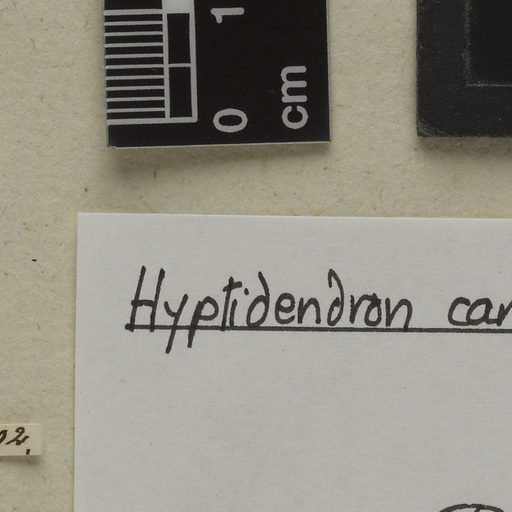 0 1
cm
Hyptidendron can
02.